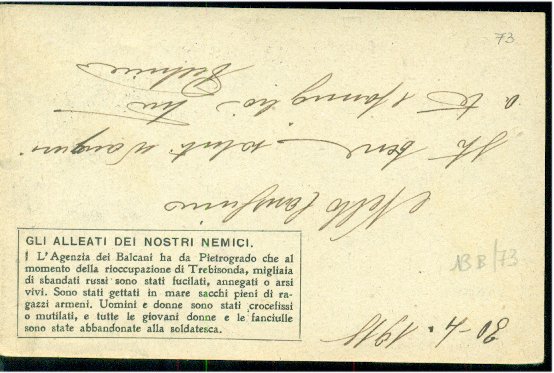 73
30-4.1918
Carissimo
St bene - saluti
a te famiglia
GLI ALLEATI DEI NOSTRI NEMICI.
L'Agenzia dei Balcani ha da Pietrogrado che al
momento della rioccupazione di Trebisonda, migliaia
di sbandati russi sono stati fucilati, annegati o arsi
vivi. Sono stati gettati in mare sacchi pieni di ra-
gazzi armeni. Uomini e donne sono stati crocefissi
o mutilati, e tutte le giovani donne e le fanciulle
sono state abbandonate alla soldatesca.
13 B/73